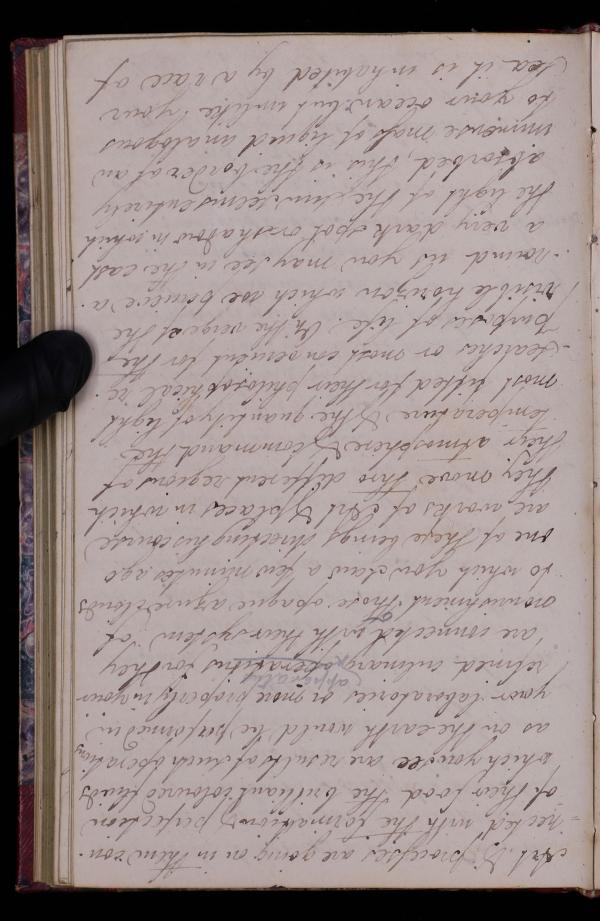 Art. & processes are going on in them con-
=nected with the formation & perfection
of their food the brilliant coloured fluids
which you see are results of such operations
as on the earth would be performed in
your laboratories or more properly in your
refined culinary operations for they
apparatus
are connected with their system of
nourishment. Those opaque azure clouds
to which you saw a few minutes ago
one of these beings directing his course
are works of Art & places in which
they move thro different regions of
their atmosphere & command the
temperature & the quantity of light
most fitted for their philosophical re-
-searches or most convenient for the
purposes of life. On the verge of the
visible horizon which we perceive a-
-round us you may see in the east
a very dark spot or shadow in which
the light of the sun seems entirely
absorbed this is the border of an
immense mass of liquid analogous
to your ocean but unlike your
sea it is inhabited by a race of